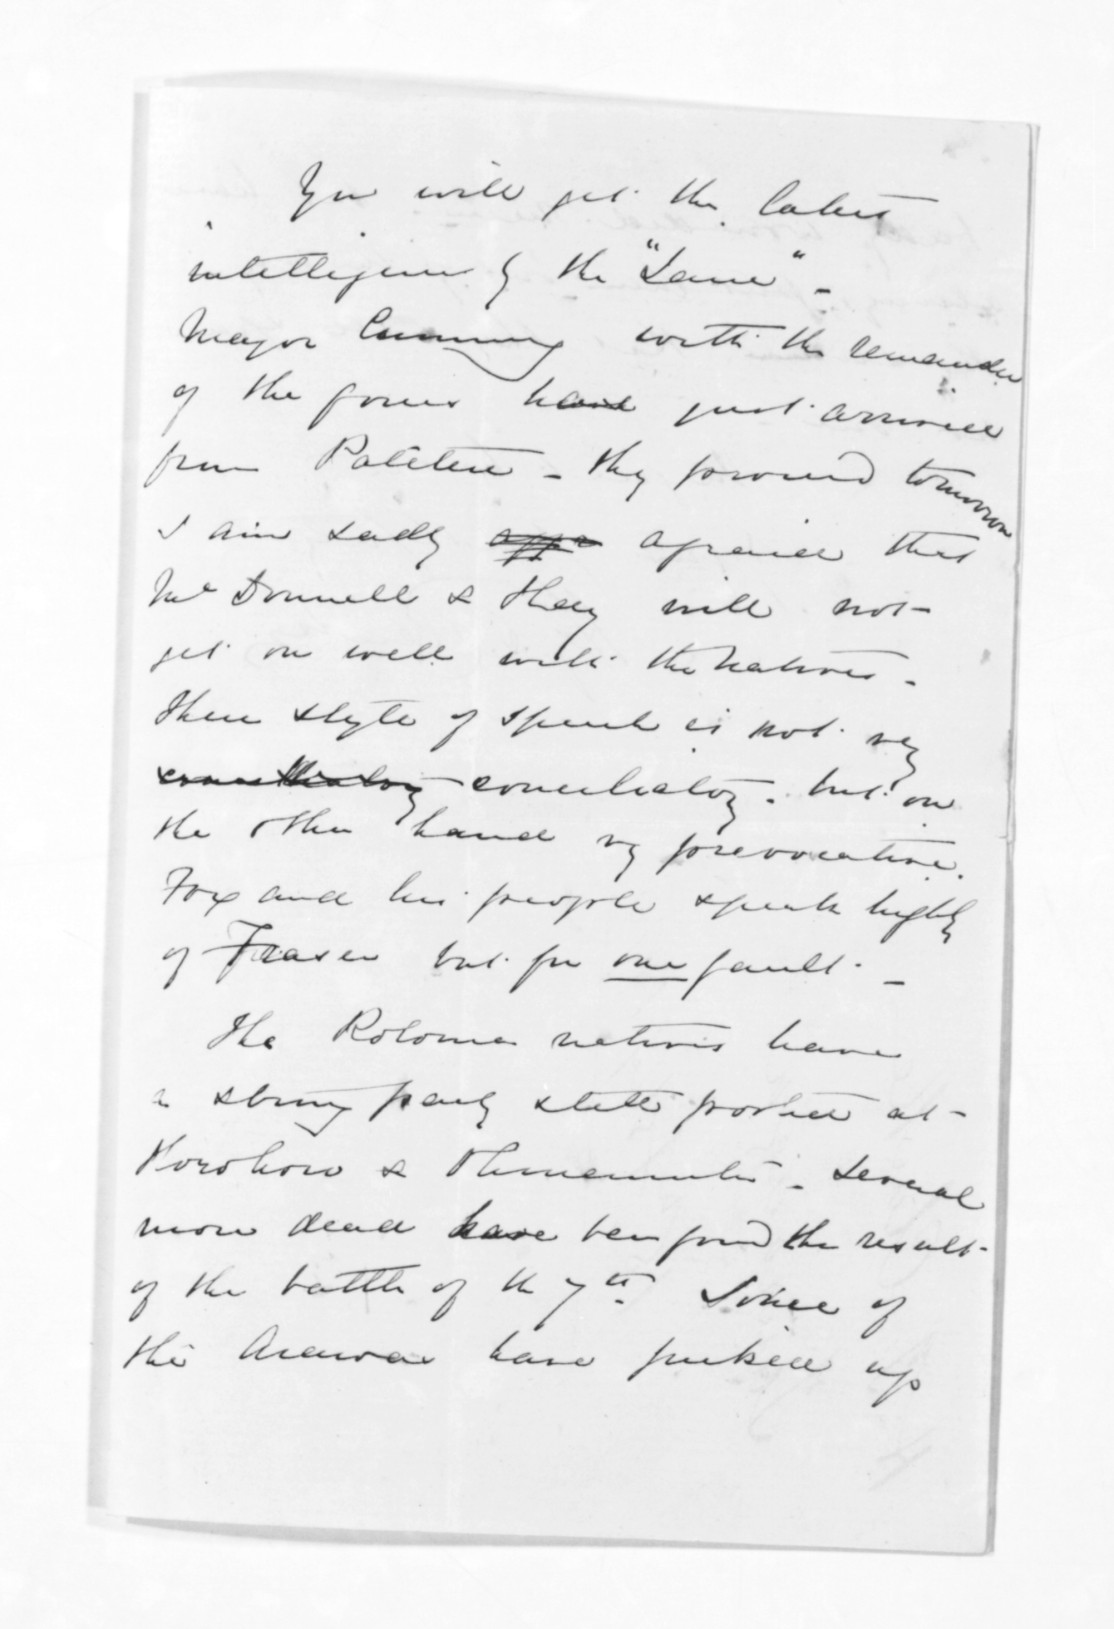 You will get the latest
intelligence by the "Lane" -
Major Cumming with the remainder
of the forces have just arrived
from Patetere - they proceed tomorrow
I am sadly afraid that
McDonnell & they will not
get on well with the Natives -
Their style of speech is not very
conciliatory conciliatory - but on
the other hand very provocative.
Fox and his people speak highly
of Fraser but for one fault -
The Rotorua natives have
a strong party still posted at
Horohoro & Ohinemutu - Several
more dead have been found the result
of the battle of the 7th. Some of
the Arawa have picked up